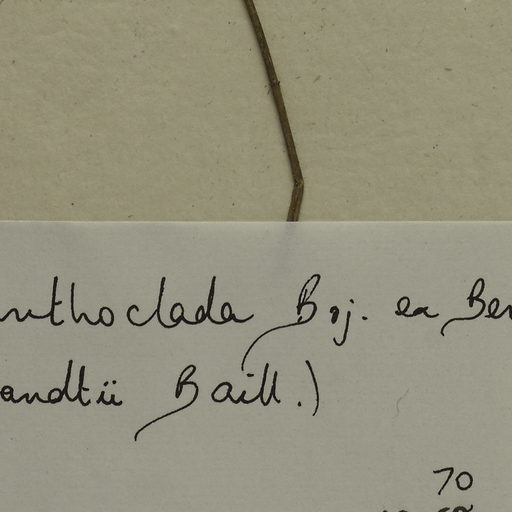 nthoclada Boj. ex Ben
andtii Baill.)
70